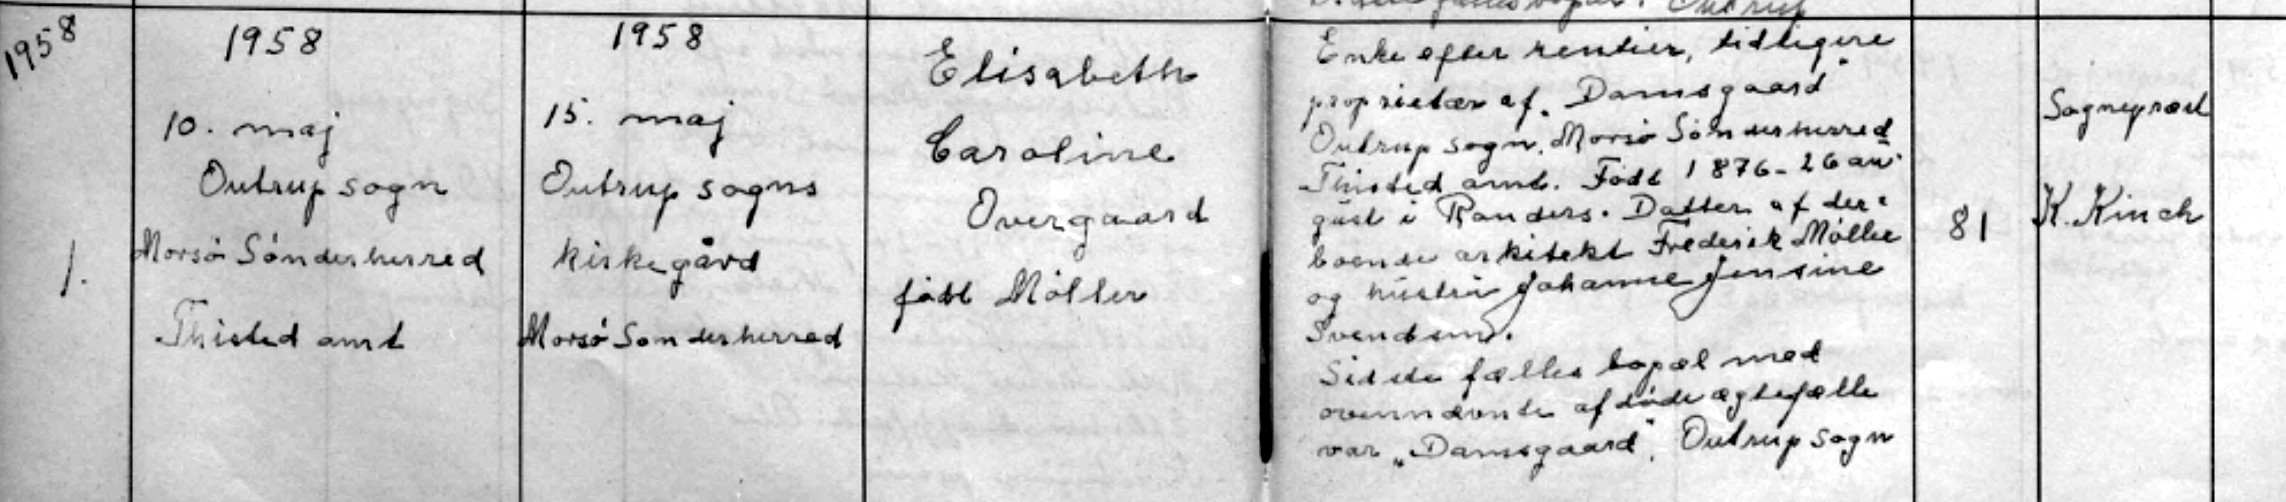 1958
1.
1958
10. maj
Outrup sogn
Morsø Sønderherred
Thisted amt
1958
15. maj
Outrup sogns
kirkegård
Morsø Sønderherred
Elisabeth
Caroline
Overgaard
født Møller
Outrup
Enke efter rentier, tidligere
proprietær af „Damsgaard"
Outrup sogn, Morsø Sønderherred
Thisted amt. Født 1876 - 26 au-
gust i Randers. Datter af der-
boende arkitekt Frederik Møller
og hustru Johanne Jensine
Svendsen.
Sidste fælles bopæl med
ovennævnte afdøde ægtefælle
var „Damsgaard", Outrup sogn
81
Sognepræst
K. Kinch